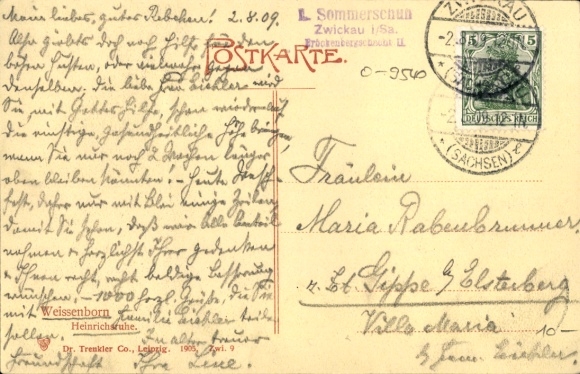 Mein liebes, gutes Rebchen! 2.8.09.
Also gibts doch noch Hilfe
bösen Husten, oder vielmehr gegen
denselben. Die liebe Frau Liebler wird
Sie mit Gottes Hilfe, schon wieder auf
die richtige, Gesundheitliche Höhe bringen,
wenn Sie nur noch 2 Wochen länger
oben bleiben könnten! - Heute
fest, daher nur mit Blei einige Zeilen,
damit Sie sehen, daß wir alle Anteil
nehmen & herzlichst Ihrer gedenken
& Ihnen recht, recht baldige Besserung
wünschen. - 1000 herzl. Grüße, die Sie
mit Familie Liebler teilen
sollen. In alter treuer
Freundschaft Ihre Lene.
Weissenborn
Heinrichsruhe.
Dr. Trenkler Co., Leipzig. 1905. Zwi. 9
L. Sommerschuh
Zwickau i/Sa.
Brückenbergschacht II.
POSTKARTE.
0-9540
ZWICKAU
(SACHSEN)
5 5
DEUTSCHES REICH
Fräulein
Maria Rabenbrunner.
z. Zt. Gippe b/ Elsterberg
Villa Maria
b/ Fam. Liebler.
10-